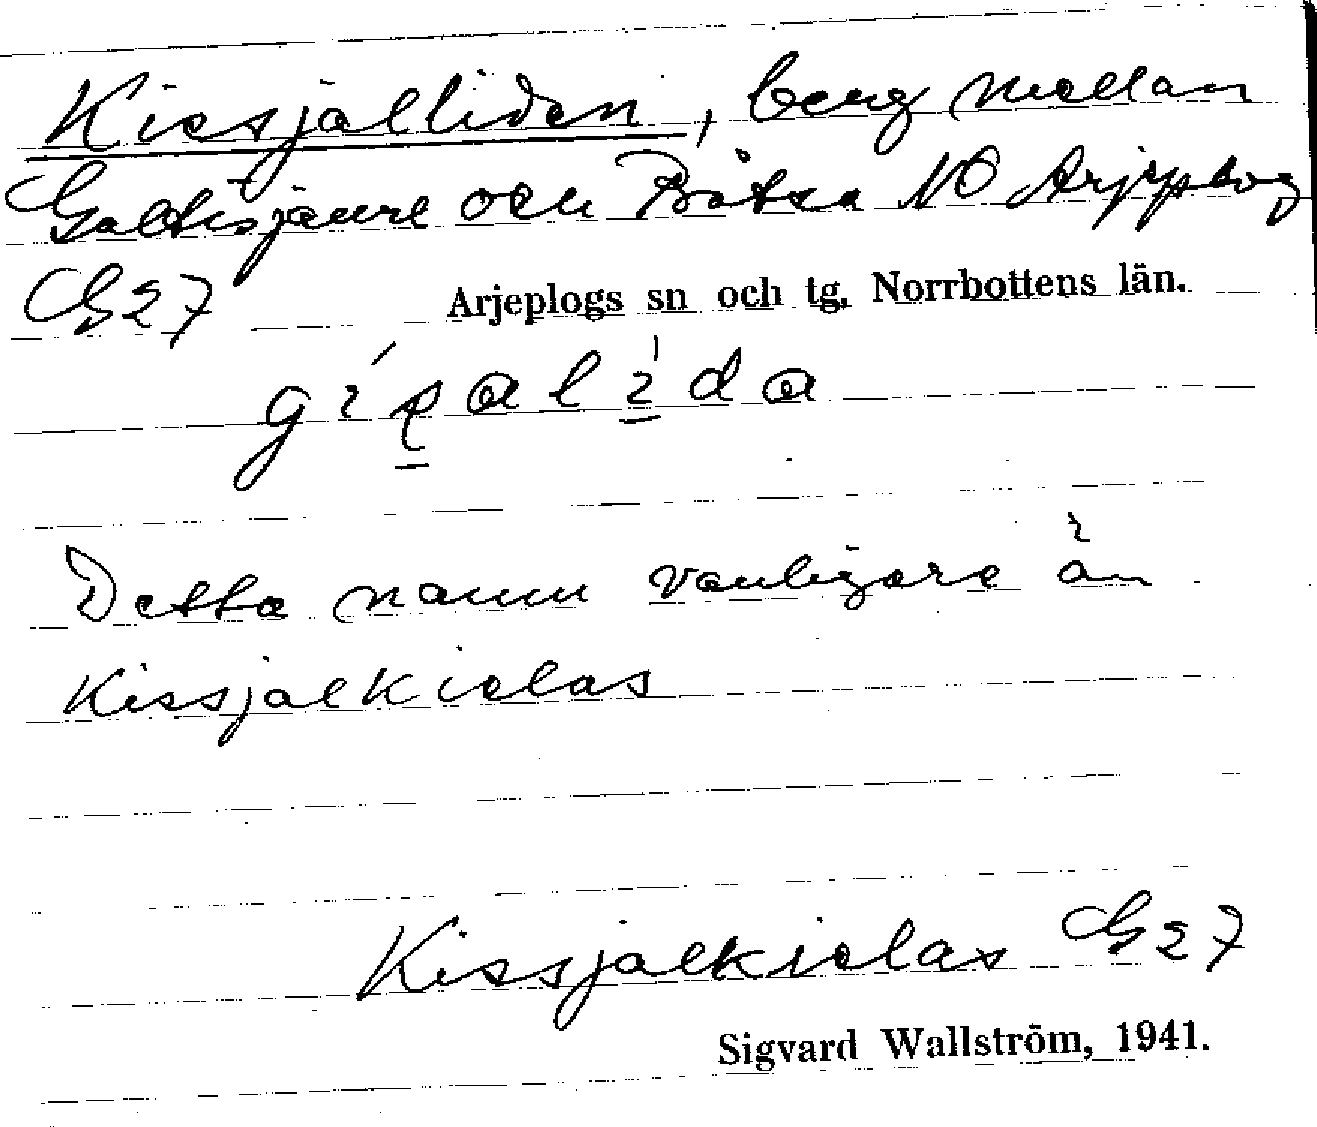 Kissjalliden, berg mellan
Galtisjaure och Båtsa NO Arjeplog
G27
Arjeplogs sn och tg. Norrbottens län.
Detta namn vanligare än
Kissjalkielas
Kissjalkielas G27
Sigvard Wallström, 1941.